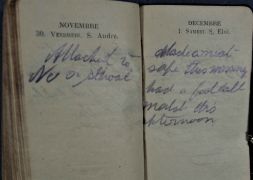 NOVEMBRE
30. VENDREDI. S. André.
Attached to
No on
DÉCEMBRE
1 SAMEDI. S. Eloi.
safe this morning
had a football
match this
afternoon